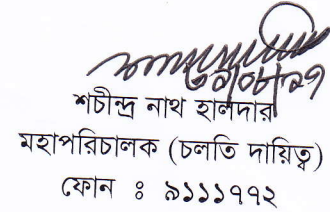 শচীন্দ্র নাথ হালদার
মহাপরিচালক (চলতি দায়িত্ব)
ফোন ঃ ৯১১১৭৭২